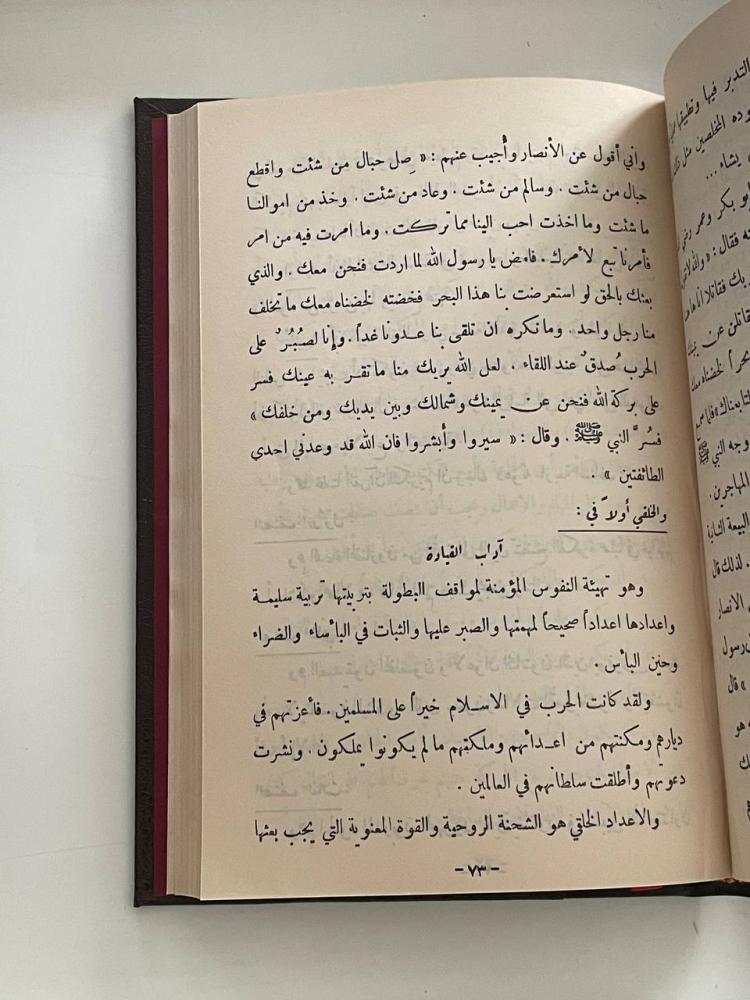 واني أقول عن الأنصار وأُجيب عنهم : « صِل حبال من شئت واقطع
حبال من شئت . وسالم من شئت . وعاد من شئت . وخذ من اموالنا
ما شئت وما اخذت احب الينا مما تركت . وما امرت فيه من امر
فأمرنا تبع لأمرك . فامض يا رسول الله لما اردت فنحن معك . والذي
بعثك بالحق لو استعرضت بنا هذا البحر فخضته لخضناه معك ما تخلف
منا رجل واحد . وما نكره ان تلقى بنا عدونا غداً . وإنا لصُبُرٌ على
الحرب صُدقٌ عند اللقاء . لعل الله يريك منا ما تقر به عينك فسر
على بركة الله فنحن عن يمينك وشمالك وبين يديك ومن خلفك »
فسُرَّ النبي ﷺ . وقال : « سيروا وأبشروا فان الله قد وعدني احدى
الطائفتين » .
والخلقي أولاً في :
آداب القيادة
وهو تهيئة النفوس المؤمنة لمواقف البطولة بتربيتها تربية سليمة
واعدادها اعداداً صحيحاً لمهمتها والصبر عليها والثبات في البأساء والضراء
وحين البأس .
ولقد كانت الحرب في الاسلام خيراً على المسلمين . فأعزتهم في
ديارهم ومكنتهم من اعدائهم وملكتهم ما لم يكونوا يملكون . ونشرت
دعوتهم وأطلقت سلطانهم في العالمين .
والاعداد الخلقي هو الشحنة الروحية والقوة المعنوية التي يجب بعثها
– ٧٣ –
التدبر فيها
المخلصين مثل
يشاء ...
بو بكر وعمر
فقال : « والله
فقاتلا انا
عن
لخضناه معك
وجه النبي ﷺ
المهاجرين .
البيعة الثانية
. لذلك قال
الانصار
رسول
» قال
هو